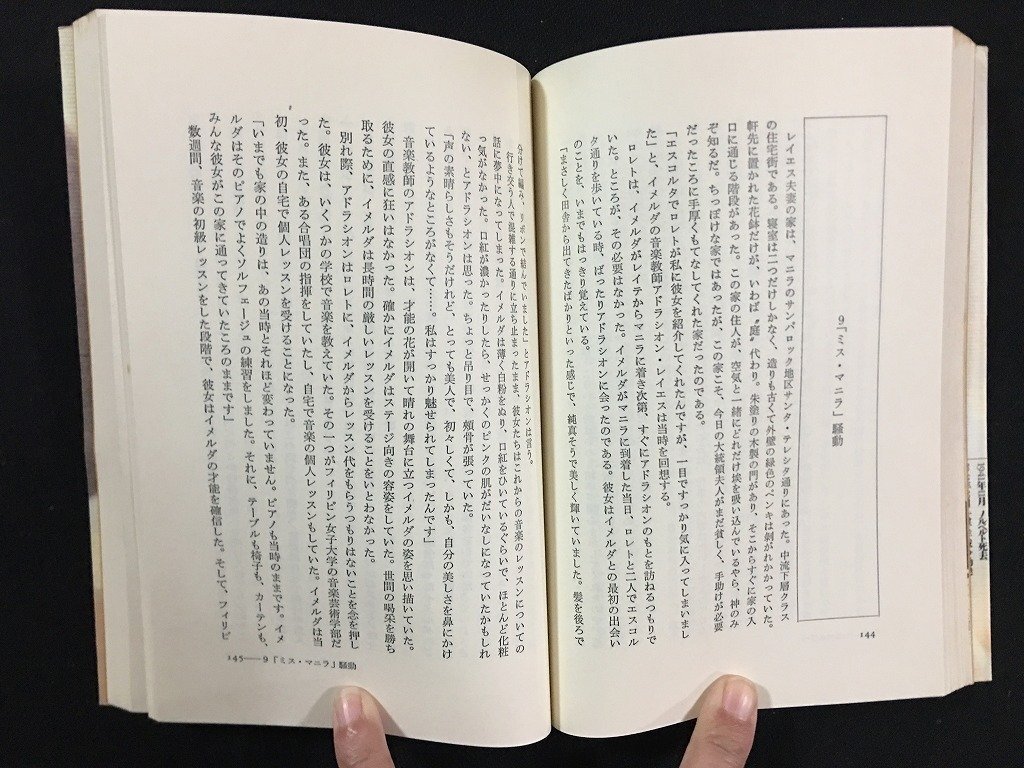 9「ミス・マニラ」騒動
レイエス夫妻の家は、マニラのサンパロック地区サンタ・テレシタ通りにあった。中流下層クラス
の住宅街である。寝室は二つだけしかなく、造りも古くて外壁の緑色のペンキは剝がれかかっていた。
軒先に置かれた花鉢だけが、いわば〝庭〟代わり。朱塗りの木製の門があり、そこからすぐに家の入
口に通じる階段があった。この家の住人が、空気と一緒にどれだけ埃を吸い込んでいるやら、神のみ
ぞ知るだ。ちっぽけな家ではあったが、この家こそ、今日の大統領夫人がまだ貧しく、手助けが必要
だったころに手厚くもてなしてくれた家だったのである。
「エスコルタでロレトが私に彼女を紹介してくれたんですが、一目ですっかり気に入ってしまいまし
た」と、イメルダの音楽教師アドラシオン・レイエスは当時を回想する。
ロレトは、イメルダがレイテからマニラに着き次第、すぐにアドラシオンのもとを訪ねるつもりで
いた。ところが、その必要はなかった。イメルダがマニラに到着した当日、ロレトと二人でエスコル
タ通りを歩いている時、ばったりアドラシオンに会ったのである。彼女はイメルダとの最初の出会い
のことを、いまでもはっきり覚えている。
「まさしく田舎から出てきたばかりといった感じで、純真そうで美しく輝いていました。髪を後ろで
144
分けて編み、リボンで結んでいました」とアドラシオンは言う。
行き交う人で混雑する通りに立ち止まったまま、彼女たちはこれからの音楽のレッスンについての
話に夢中になってしまった。イメルダは薄く白粉をぬり、口紅をひいているぐらいで、ほとんど化粧
っ気がなかった。口紅が濃かったりしたら、せっかくのピンクの肌がだいなしになっていたかもしれ
ない、とアドラシオンは思った。ちょっと吊り目で、頰骨が張っていた。
「声の素晴らしさもそうだけれど、とっても美人で、初々しくて、しかも、自分の美しさを鼻にかけ
ているようなところがなくて……。私はすっかり魅せられてしまったんです」
音楽教師のアドラシオンは、才能の花が開いて晴れの舞台に立つイメルダの姿を思い描いていた。
彼女の直感に狂いはなかった。確かにイメルダはステージ向きの容姿をしていた。世間の喝采を勝ち
取るために、イメルダは長時間の厳しいレッスンを受けることをいとわなかった。
別れ際、アドラシオンはロレトに、イメルダからレッスン代をもらうつもりはないことを念を押し
た。彼女は、いくつかの学校で音楽を教えていた。その一つがフィリピン女子大学の音楽芸術学部だ
った。また、ある合唱団の指揮をしていたし、自宅で音楽の個人レッスンもしていた。イメルダは当
初、彼女の自宅で個人レッスンを受けることになった。
「いまでも家の中の造りは、あの当時とそれほど変わっていません。ピアノも当時のままです。イメ
ルダはそのピアノでよくソルフェージュの練習をしました。それに、テーブルも椅子も、カーテンも、
みんな彼女がこの家に通ってきていたころのままです」
数週間、音楽の初級レッスンをした段階で、彼女はイメルダの才能を確信した。そして、フィリピ
145——9「ミス・マニラ」騒動